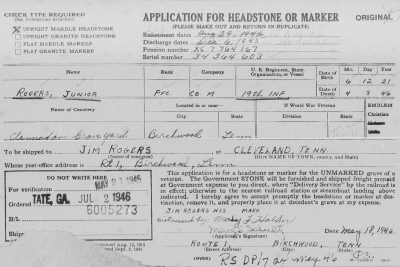 CHECK TYPE REQUIRED
(See instructions attached)
UPRIGHT MARBLE HEADSTONE
UPRIGHT GRANITE HEADSTONE
FLAT MARBLE MARKER
FLAT GRANITE MARKER
APPLICATION FOR HEADSTONE OR MARKER
(PLEASE MAKE OUT AND RETURN IN DUPLICATE)
ORIGINAL
Enlistment dates Aug 29, 1942
Discharge dates Dec 6, 1943
Pension
Serial number 34 364 603
Name
Rank
Company
U. S. Regiment, State Organization, or Vessel
Date of Birth
Date of Death
Mo.
Day
Year
6 12 21
ROGERS, JUNIOR
PFC
CO M
19th INF
4 3 46
Name of Cemetery
Located in or near—
If World War Veteran
EMBLEM
Graveyard
Birchwood
Tenn
To be shipped to JIM ROGERS at CLEVELAND, TENN.
(Name of consignee)
(Give NAME OF TOWN, county, and State)
Whose post-office address is Rt 1, Birchwood, Tenn.
DO NOT WRITE HERE
For verification MAY 21 1946
Ordered
TATE, GA. JUL 2 1946
6005273
B/L
Shipped
This application is for a headstone or marker for the UNMARKED grave of a
veteran. The Government STONE will be furnished and shipped freight prepaid
at Government expense to you direct, where "Delivery Service" by the railroad is
in effect; otherwise to the nearest railroad station or steamboat landing above
indicated. I hereby agree to promptly accept the headstone or marker at
destination, remove it, and properly place it at decedent's grave at my expense.
JIM ROGERS HIS MARK
(Applicant's Signature)
Date May 18, 1946
ROUTE 1, BIRCHWOOD, TENN
(Street Address)
(City)
(State)
(OVER)
24 May 46